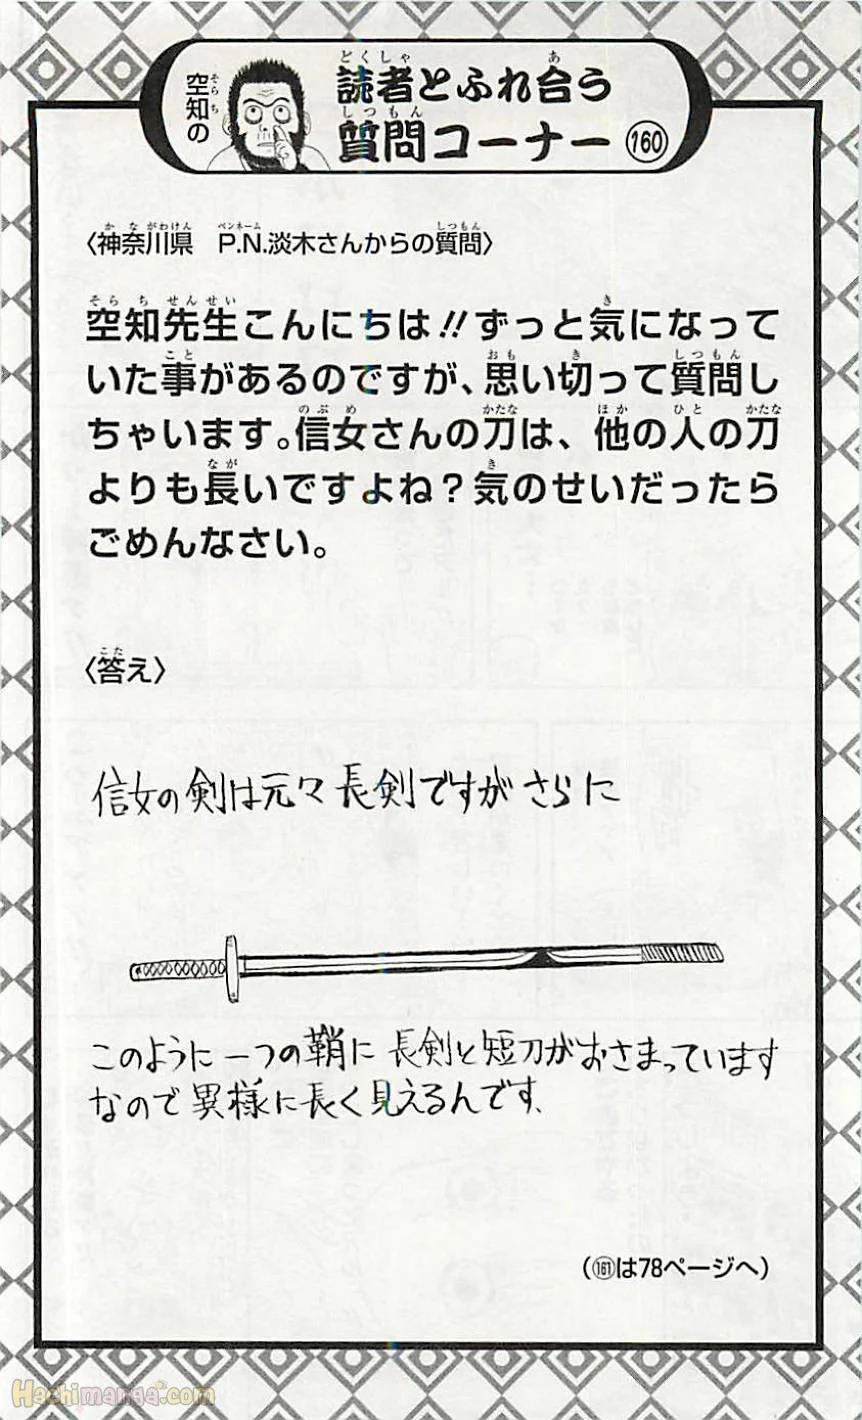 空知の
読者とふれ合う
質問コーナー 160
〈神奈川県　P.N.淡木さんからの質問〉
空知先生こんにちは!!ずっと気になって
いた事があるのですが、思い切って質問し
ちゃいます。信女さんの刀は、他の人の刀
よりも長いですよね？気のせいだったら
ごめんなさい。
〈答え〉
信女の剣は元々長剣ですがさらに
このように一つの鞘に長剣と短刀がおさまっています
なので異様に長く見えるんです、
（161は78ページへ）
Hachimanga.com